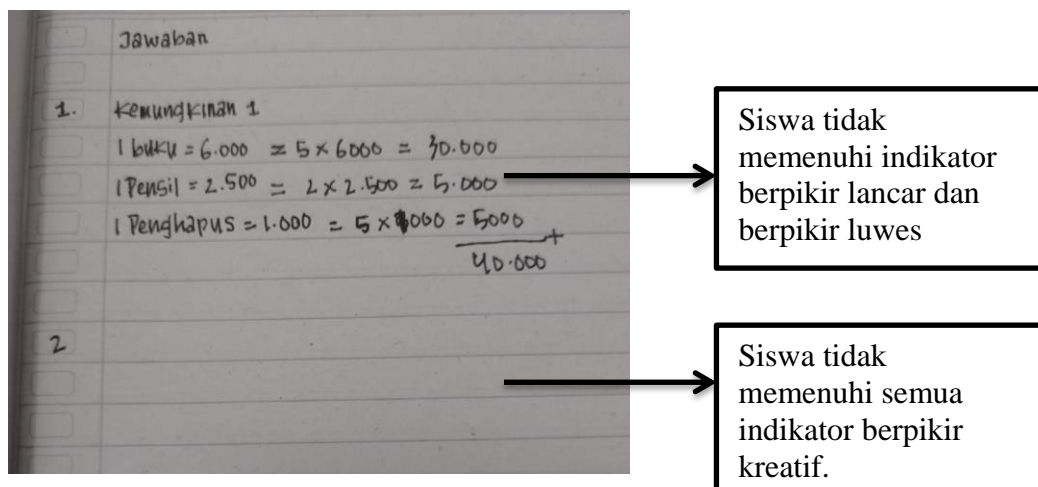 Jawaban
1. Kemungkinan 1
1 buku = 6.000 = 5 × 6000 = 30.000
1 Pensil = 2.500 = 2 × 2.500 = 5.000
1 Penghapus = 1.000 = 5 × 1000 = 5000
+
40.000
2
Siswa tidak
memenuhi indikator
berpikir lancar dan
berpikir luwes
Siswa tidak
memenuhi semua
indikator berpikir
kreatif.